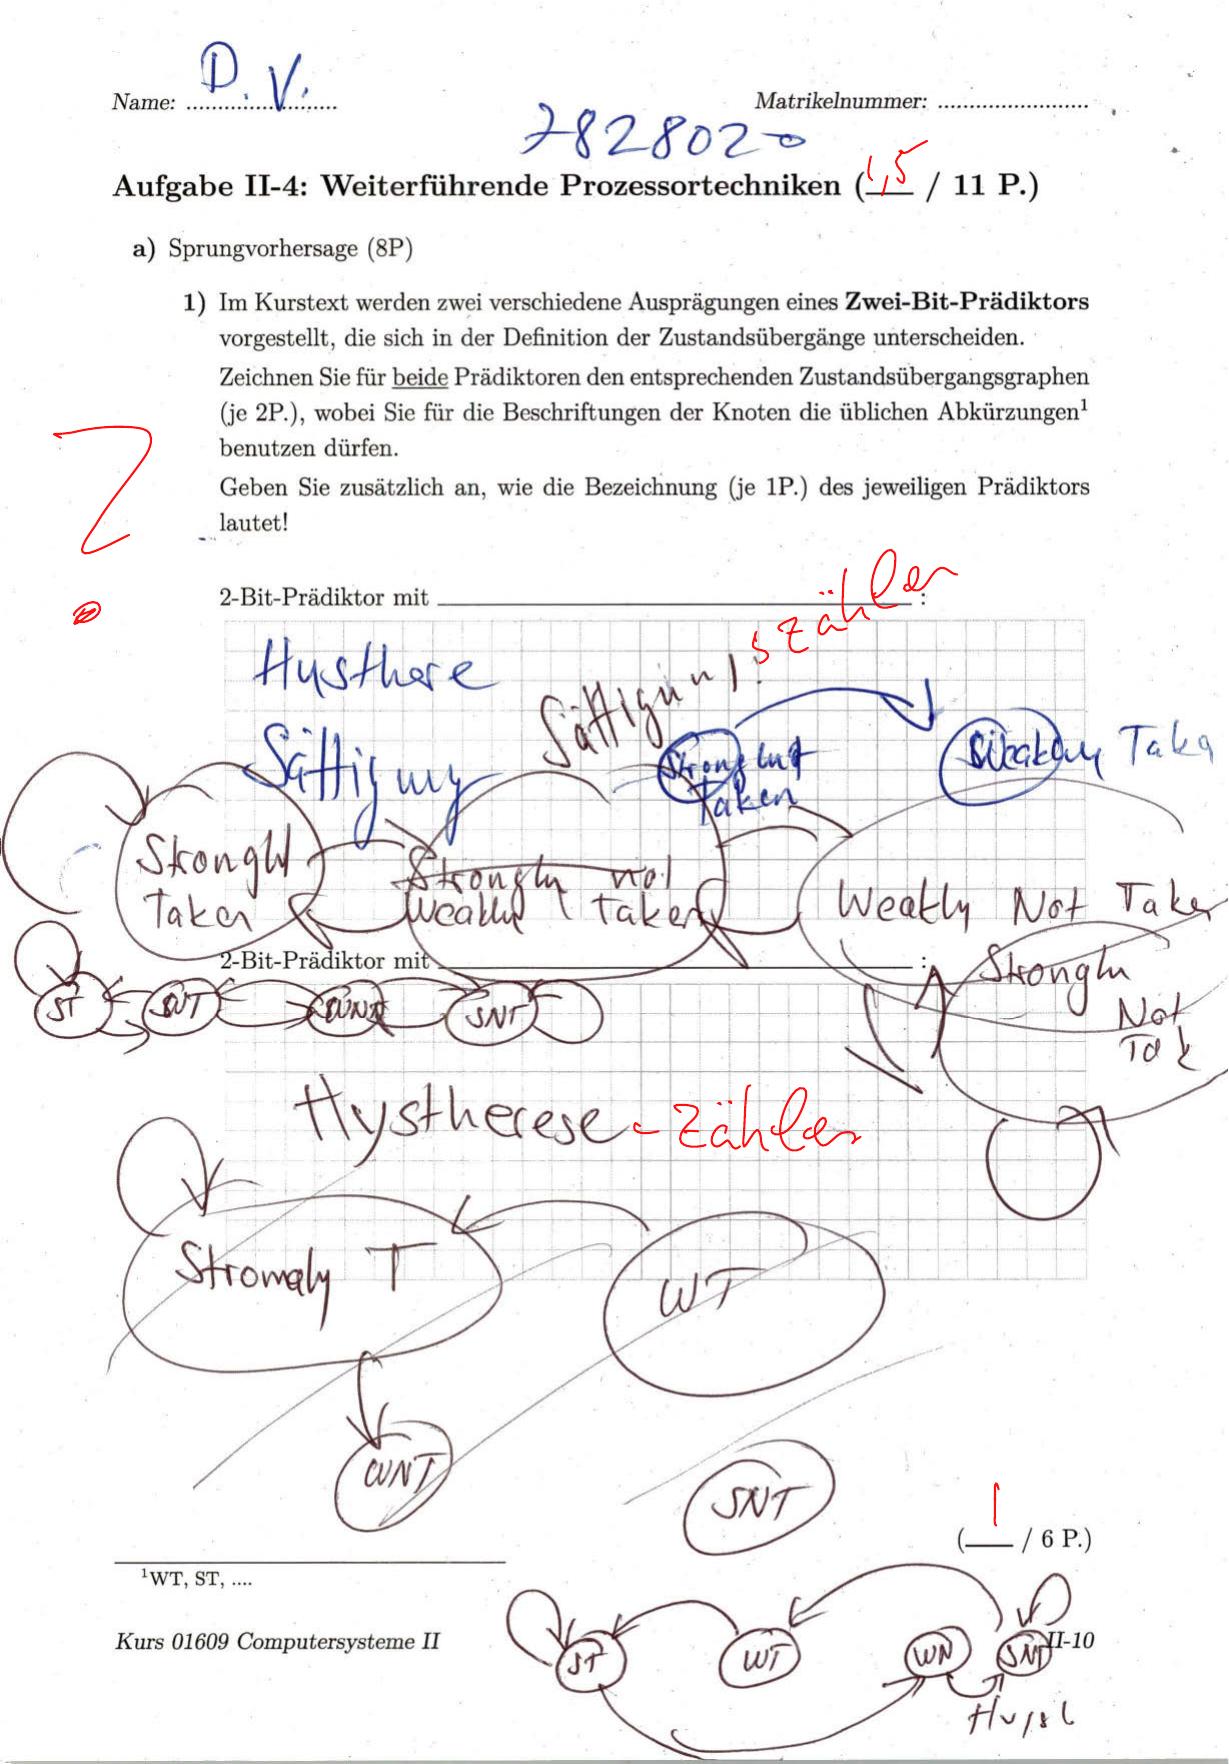 D. V.
Name: ........................ Matrikelnummer: ........................
7828020
Aufgabe II-4: Weiterführende Prozessortechniken (1,5 / 11 P.)
a) Sprungvorhersage (8P)
1) Im Kurstext werden zwei verschiedene Ausprägungen eines Zwei-Bit-Prädiktors
vorgestellt, die sich in der Definition der Zustandsübergänge unterscheiden.
Zeichnen Sie für beide Prädiktoren den entsprechenden Zustandsübergangsgraphen
(je 2P.), wobei Sie für die Beschriftungen der Knoten die üblichen Abkürzungen¹
benutzen dürfen.
Geben Sie zusätzlich an, wie die Bezeichnung (je 1P.) des jeweiligen Prädiktors
lautet!
2-Bit-Prädiktor mit ________ :
szähler
Hysthere
Sättigung
Taken
Strongly
Taken
Weakly Taken
Weakly Not Taken
2-Bit-Prädiktor mit ________ :
Strongly
Not
Tak
ST
SNT
Hystherese - Zähler
WT
WNT
SNT
(1 / 6 P.)
¹WT, ST, ....
Kurs 01609 Computersysteme II
ST WT WN SNT
II-10